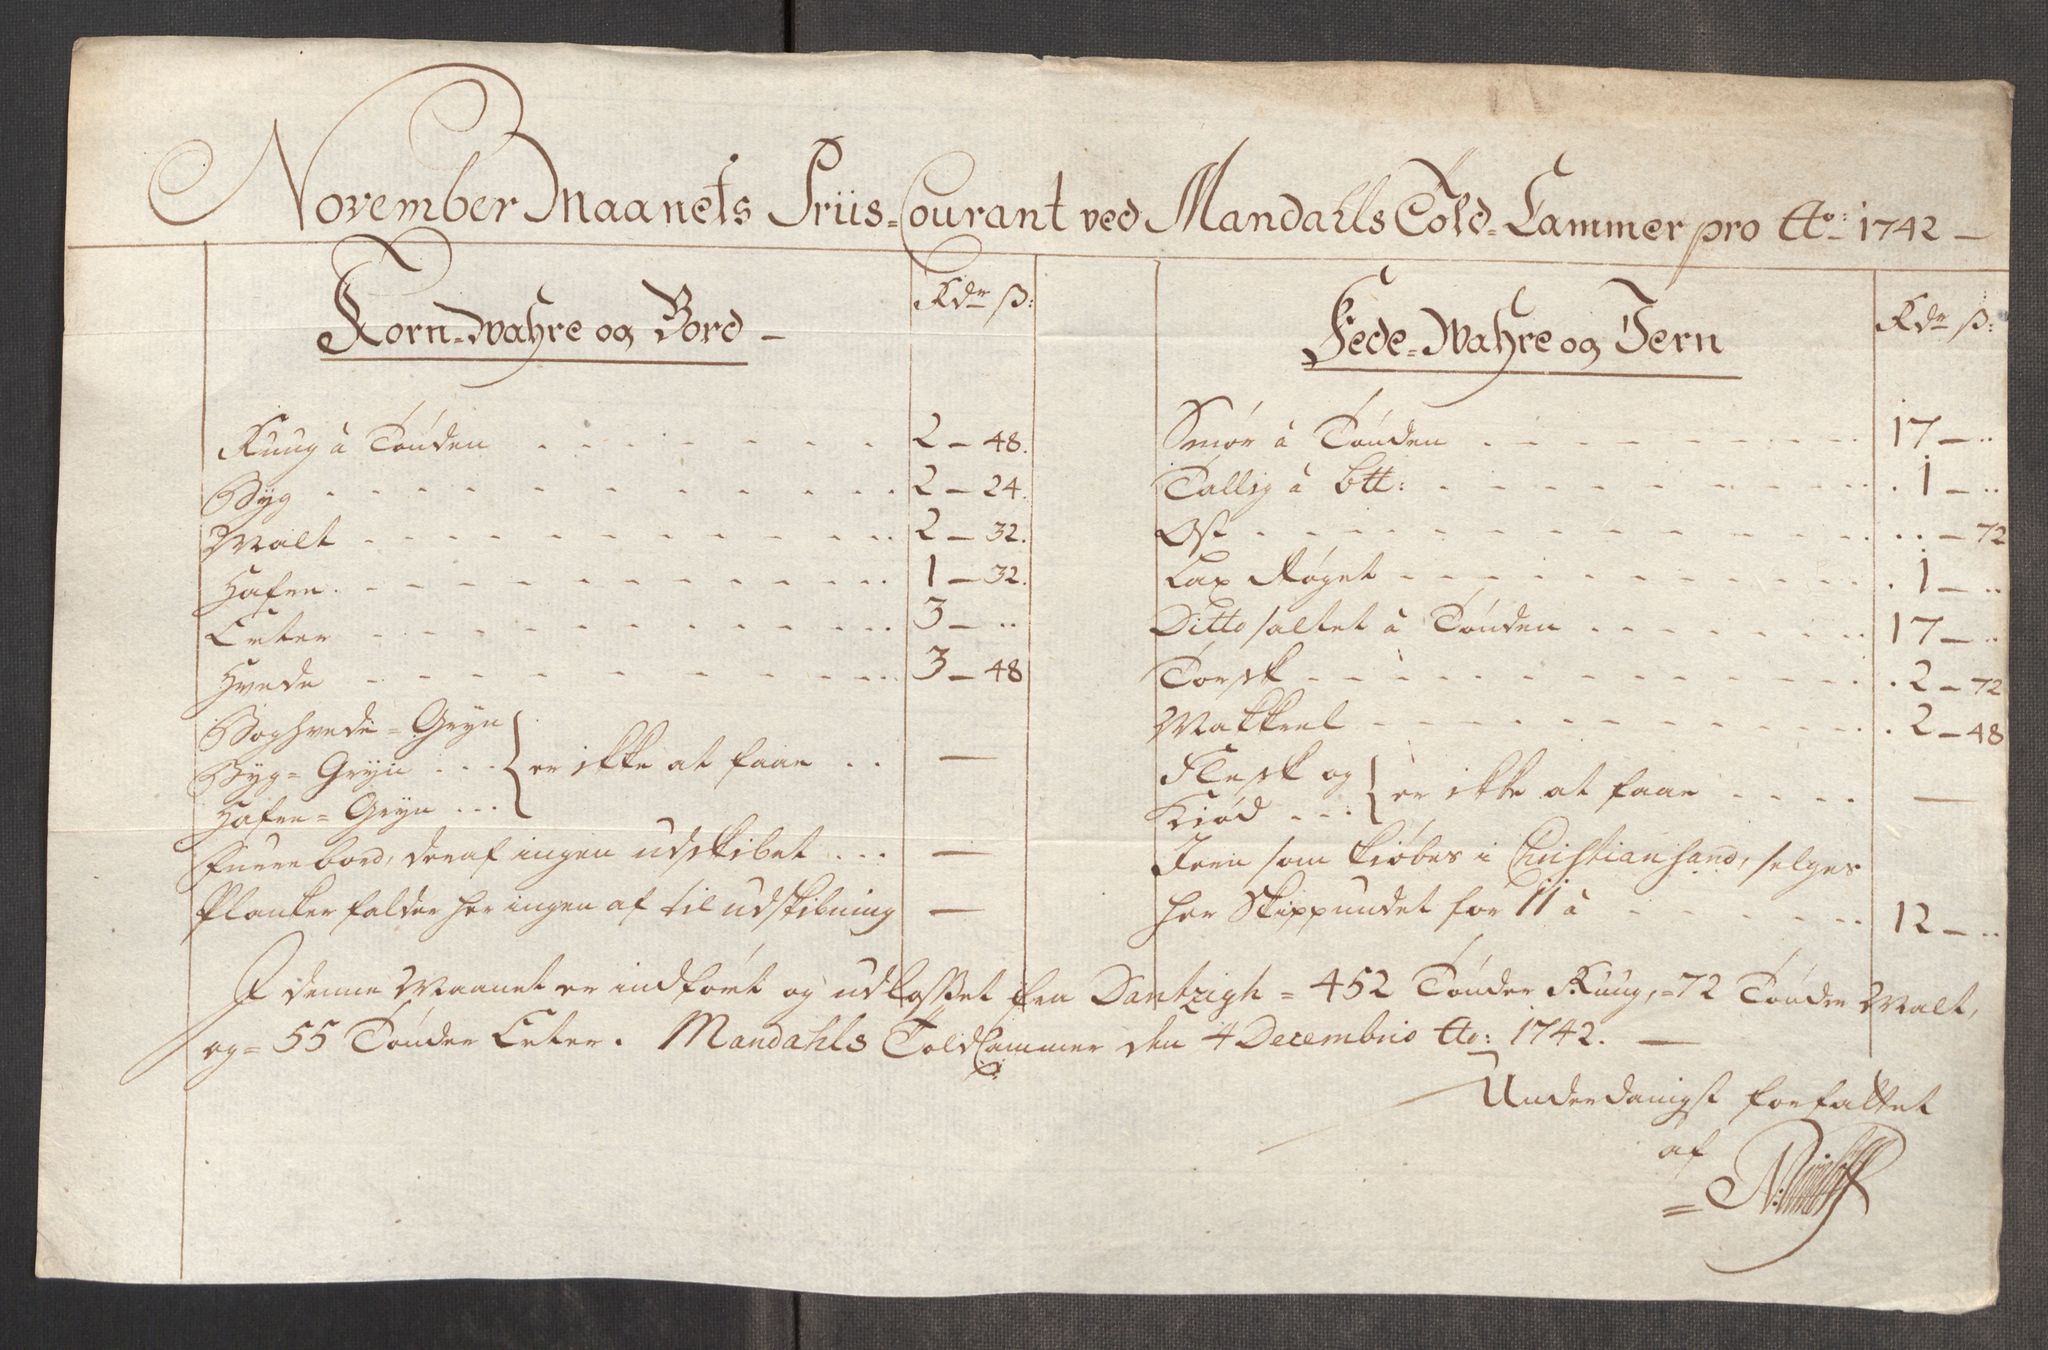 November Maanets Priis-Courant ved Mandahls Told-Cammer pro Ao: 1742 —
Korn-Wahre og Bord —
Rdr ß:
Ruug à Tønden . . . . . . . 2 — 48.
Byg . . . . . . . . . . . . 2 — 24.
Malt . . . . . . . . . . . 2 — 32.
Hafre . . . . . . . . . . . 1 — 32.
Erter . . . . . . . . . . . 3 — ..
Hvede . . . . . . . . . . . 3 — 48
Boghvede-Gryn
Byg-Gryn . . . er ikke at faae . . —
Hafre-Gryn . . .
Furrebord, deraf ingen udskibet . . . —
Planker falder her ingen af til udskibning —
Fede-Wahre og Jern
Rdr ß:
Smør à Tønden . . . . . . . . 17 — ..
Tallig à btt: . . . . . . . . . 1 — ..
Ost . . . . . . . . . . . . .. — 72
Lax Røget . . . . . . . . . . 1 — ..
Ditto saltet à Tønden . . . . . . 17 — ..
Torsk . . . . . . . . . . . . 2 — 72
Makkrel . . . . . . . . . . . 2 — 48
Flesk og
Kiød . . . er ikke at faae . . . . —
Jern som kiøbes i Christiansand, selges
her Skippundet for 11 à . . . . . . 12 — ..
I denne Maanet er indført og udlosset fra Dantzigh = 452 Tønder Ruug, = 72 Tønder Malt,
og = 55 Tønder Erter. Mandahls Told Cammer den 4 Decembris Ao: 1742. —
Underdanigst forfattet
af